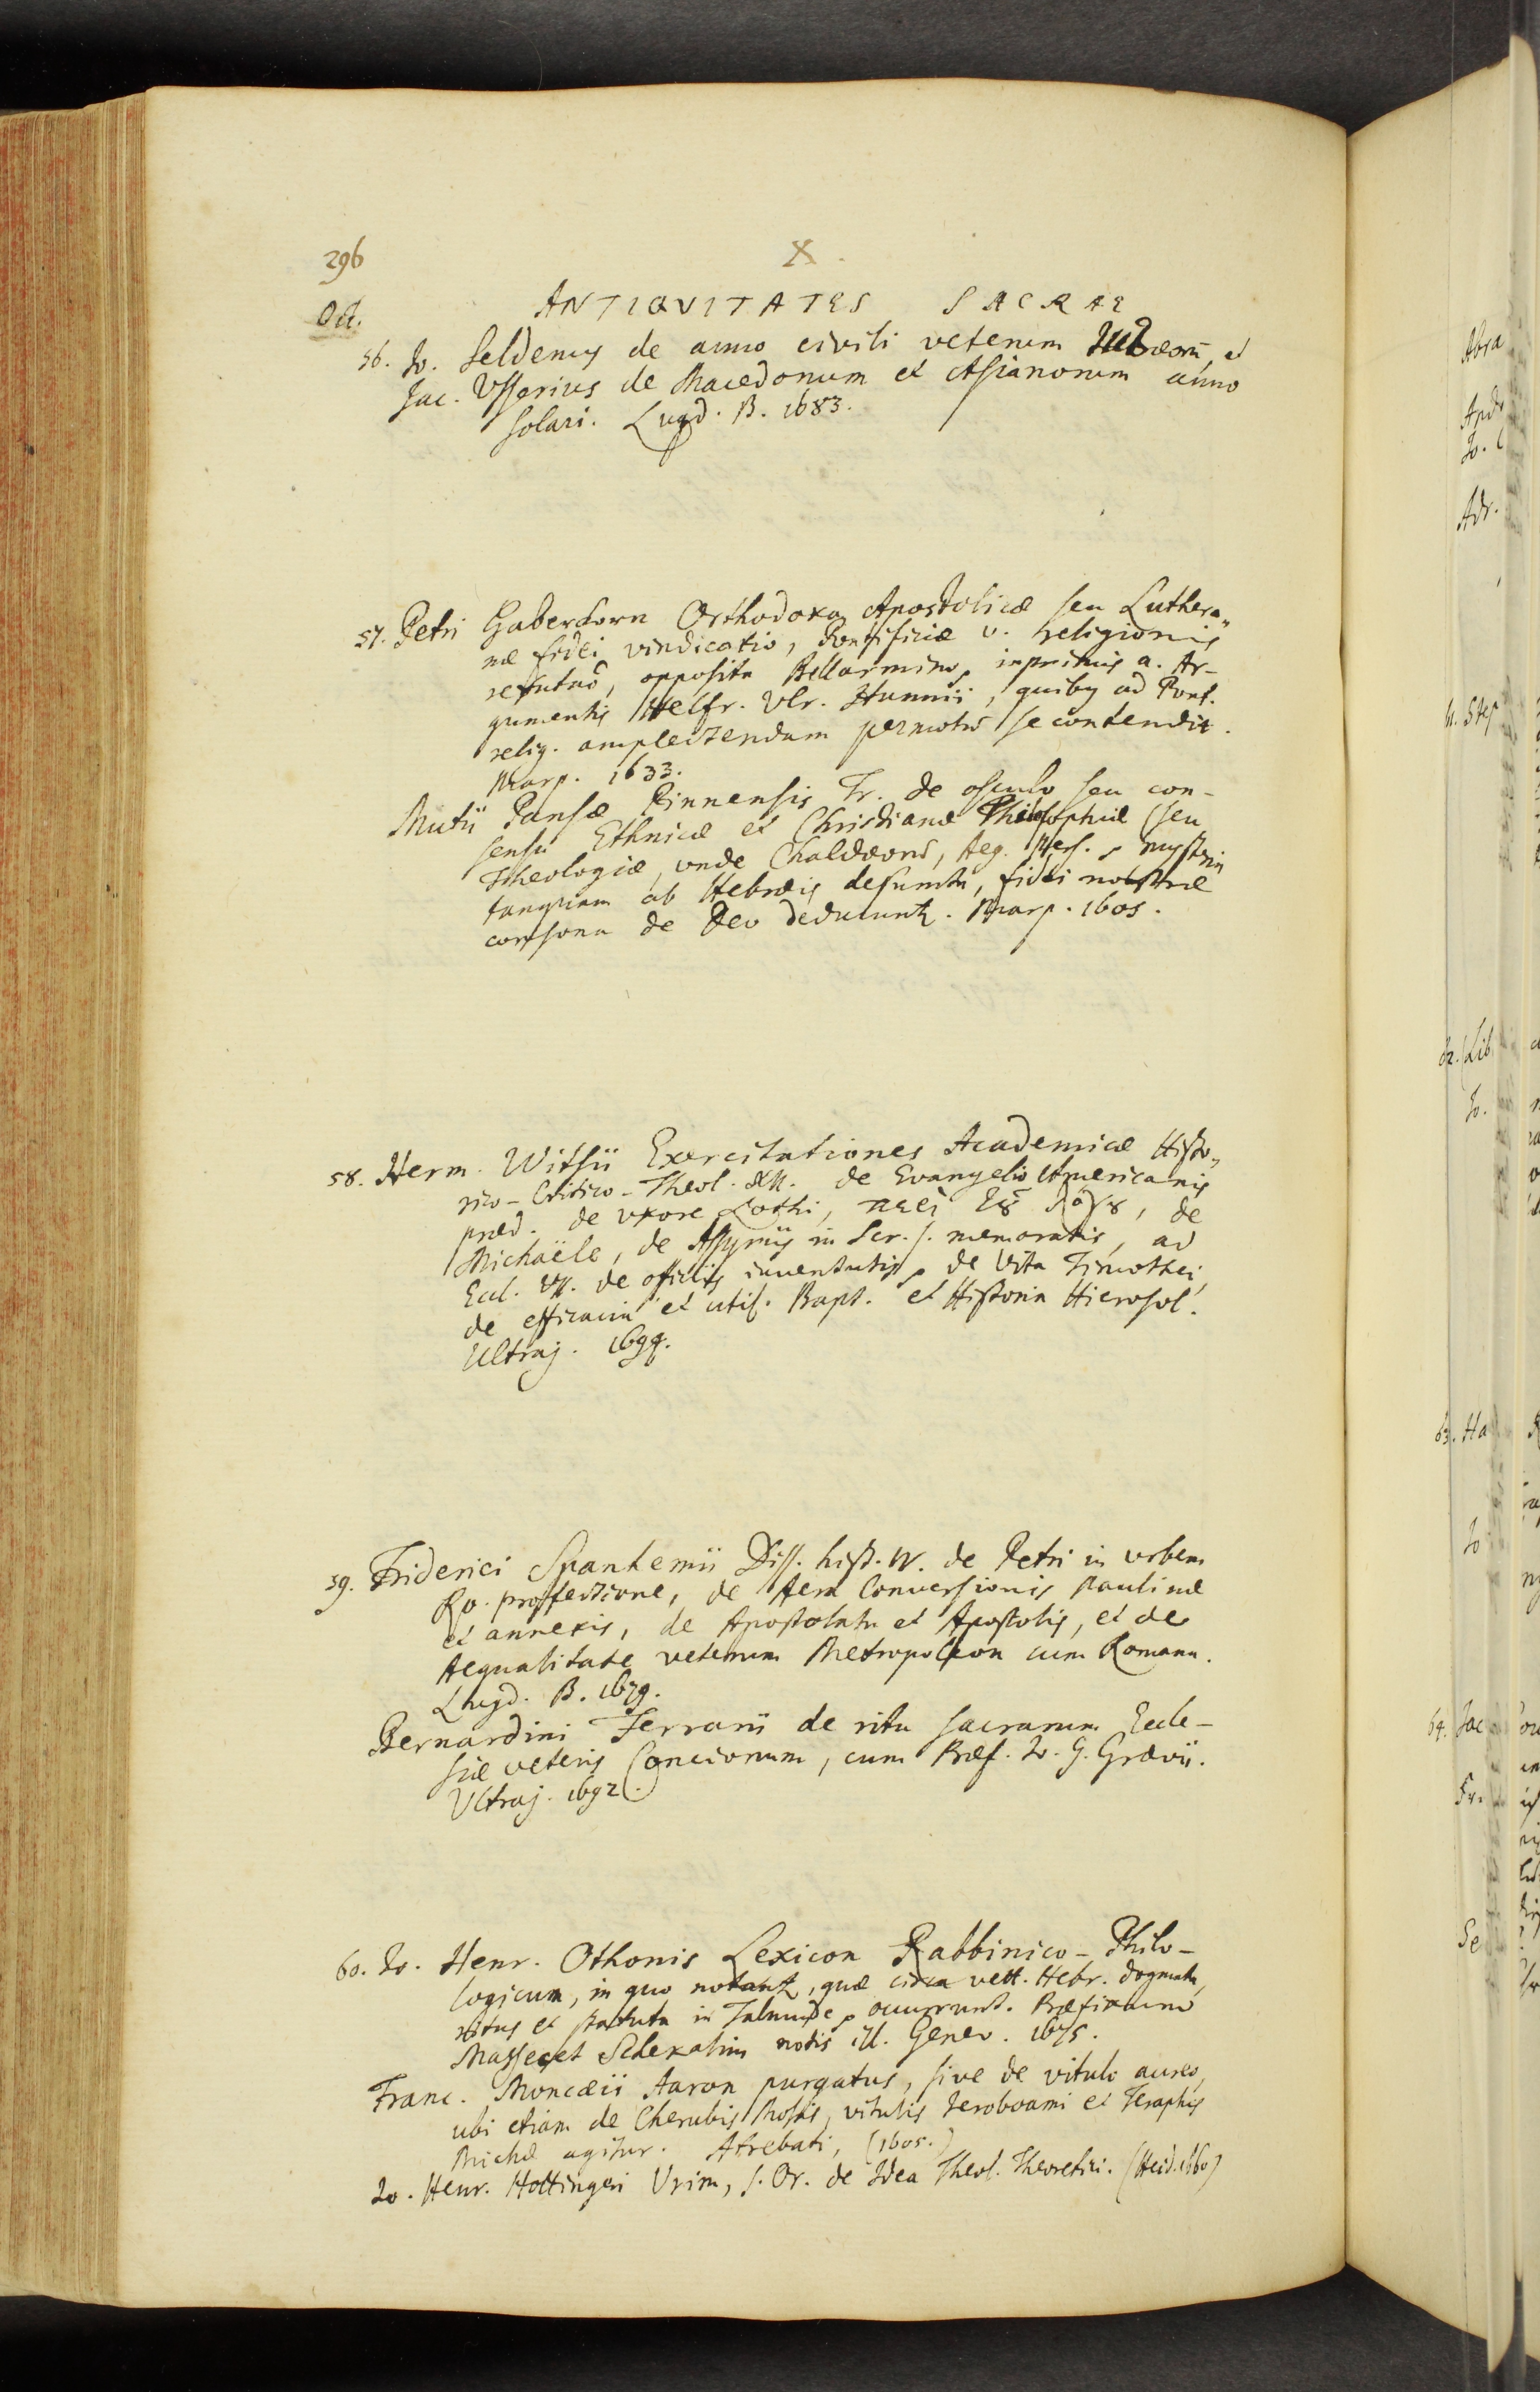 296
X.
Oct.
ANTIQVITATES SACRAE
56. Jo. Seldenus de anno civili veterum Iudaeorū, et
Jac. Vsserius de Macedonum et Asianorum anno
solari. Lugd. B. 1683.
57. Petri Haberkorn Orthodoxa Apostolicæ seu Luthera„
næ fidei vindicatio, Pontificiæ v. religionis
refutaō, opposita Bellarmino, inprimis a. Ar-
gumentis Helfr. Vlr. Hunnii, quibus ad Pont.
relig. amplectendam permotus se contendit.
Marp. 1633.
Mutii Pansæ Pinnensis Tr. de osculo seu con-
sensu Ethnicæ et Christianæ Philosophiæ (seu
Theologiæ, unde Chaldæor, Aeg. Pers. mysteria
tanquam ab Hebræis desumta, fidei nostræ
consona de Deo deducunt. Marp. 1605.
58. Herm. Witsii Exercitationes Academicæ Histo„
rico-Critico-Theol. XII. de Evangelio Americanis
præd. de vxore Lothi, περὶ τȣ̃ λόγȣ, de
Michaële, de Assyriis in Scr. s. memoratis, ad
Eccl. de officiis iuventutis, de vita Timothei,
de efficacia et util. Bapt. et Historia Hierosol.
Ultraj. 1694.
59. Friderici Spanhemii Diss. hist. IV. de Petri in vrbem
Ro. proffectione, de Aera Conversionis Paulinæ
et annexis, de Apostolatu et Apostolis, et de
Aequalitate veterum Metropoleon cum Romana.
Lugd. B. 1679.
Bernardini Ferrarii de ritu sacrarum Eccle-
siæ veteris Concionum, cum Præf. Jo. G. Grævii.
Vltraj. 1692.
60. Jo. Henr. Othonis Lexicon Rabbinico-Philo-
logicum, in quo notant, quæ circa vett. Hebr. dogmata,
ritus et statuta in Talmude occurrunt. Præfix
Massecet Schekalim notis ill. Genev. 1675.
Franc. Moncæii Aaron purgatus, sive de vitulo aureo,
ubi etiam de Cherubis Mosis, vitulis Ieroboami et Teraphis
Michæ agitur. Atrebati, (1605.)
Jo. Henr. Hottingeri Vrim, s. Or. de Idea Theol. Theoretici. (Heid. 1660)